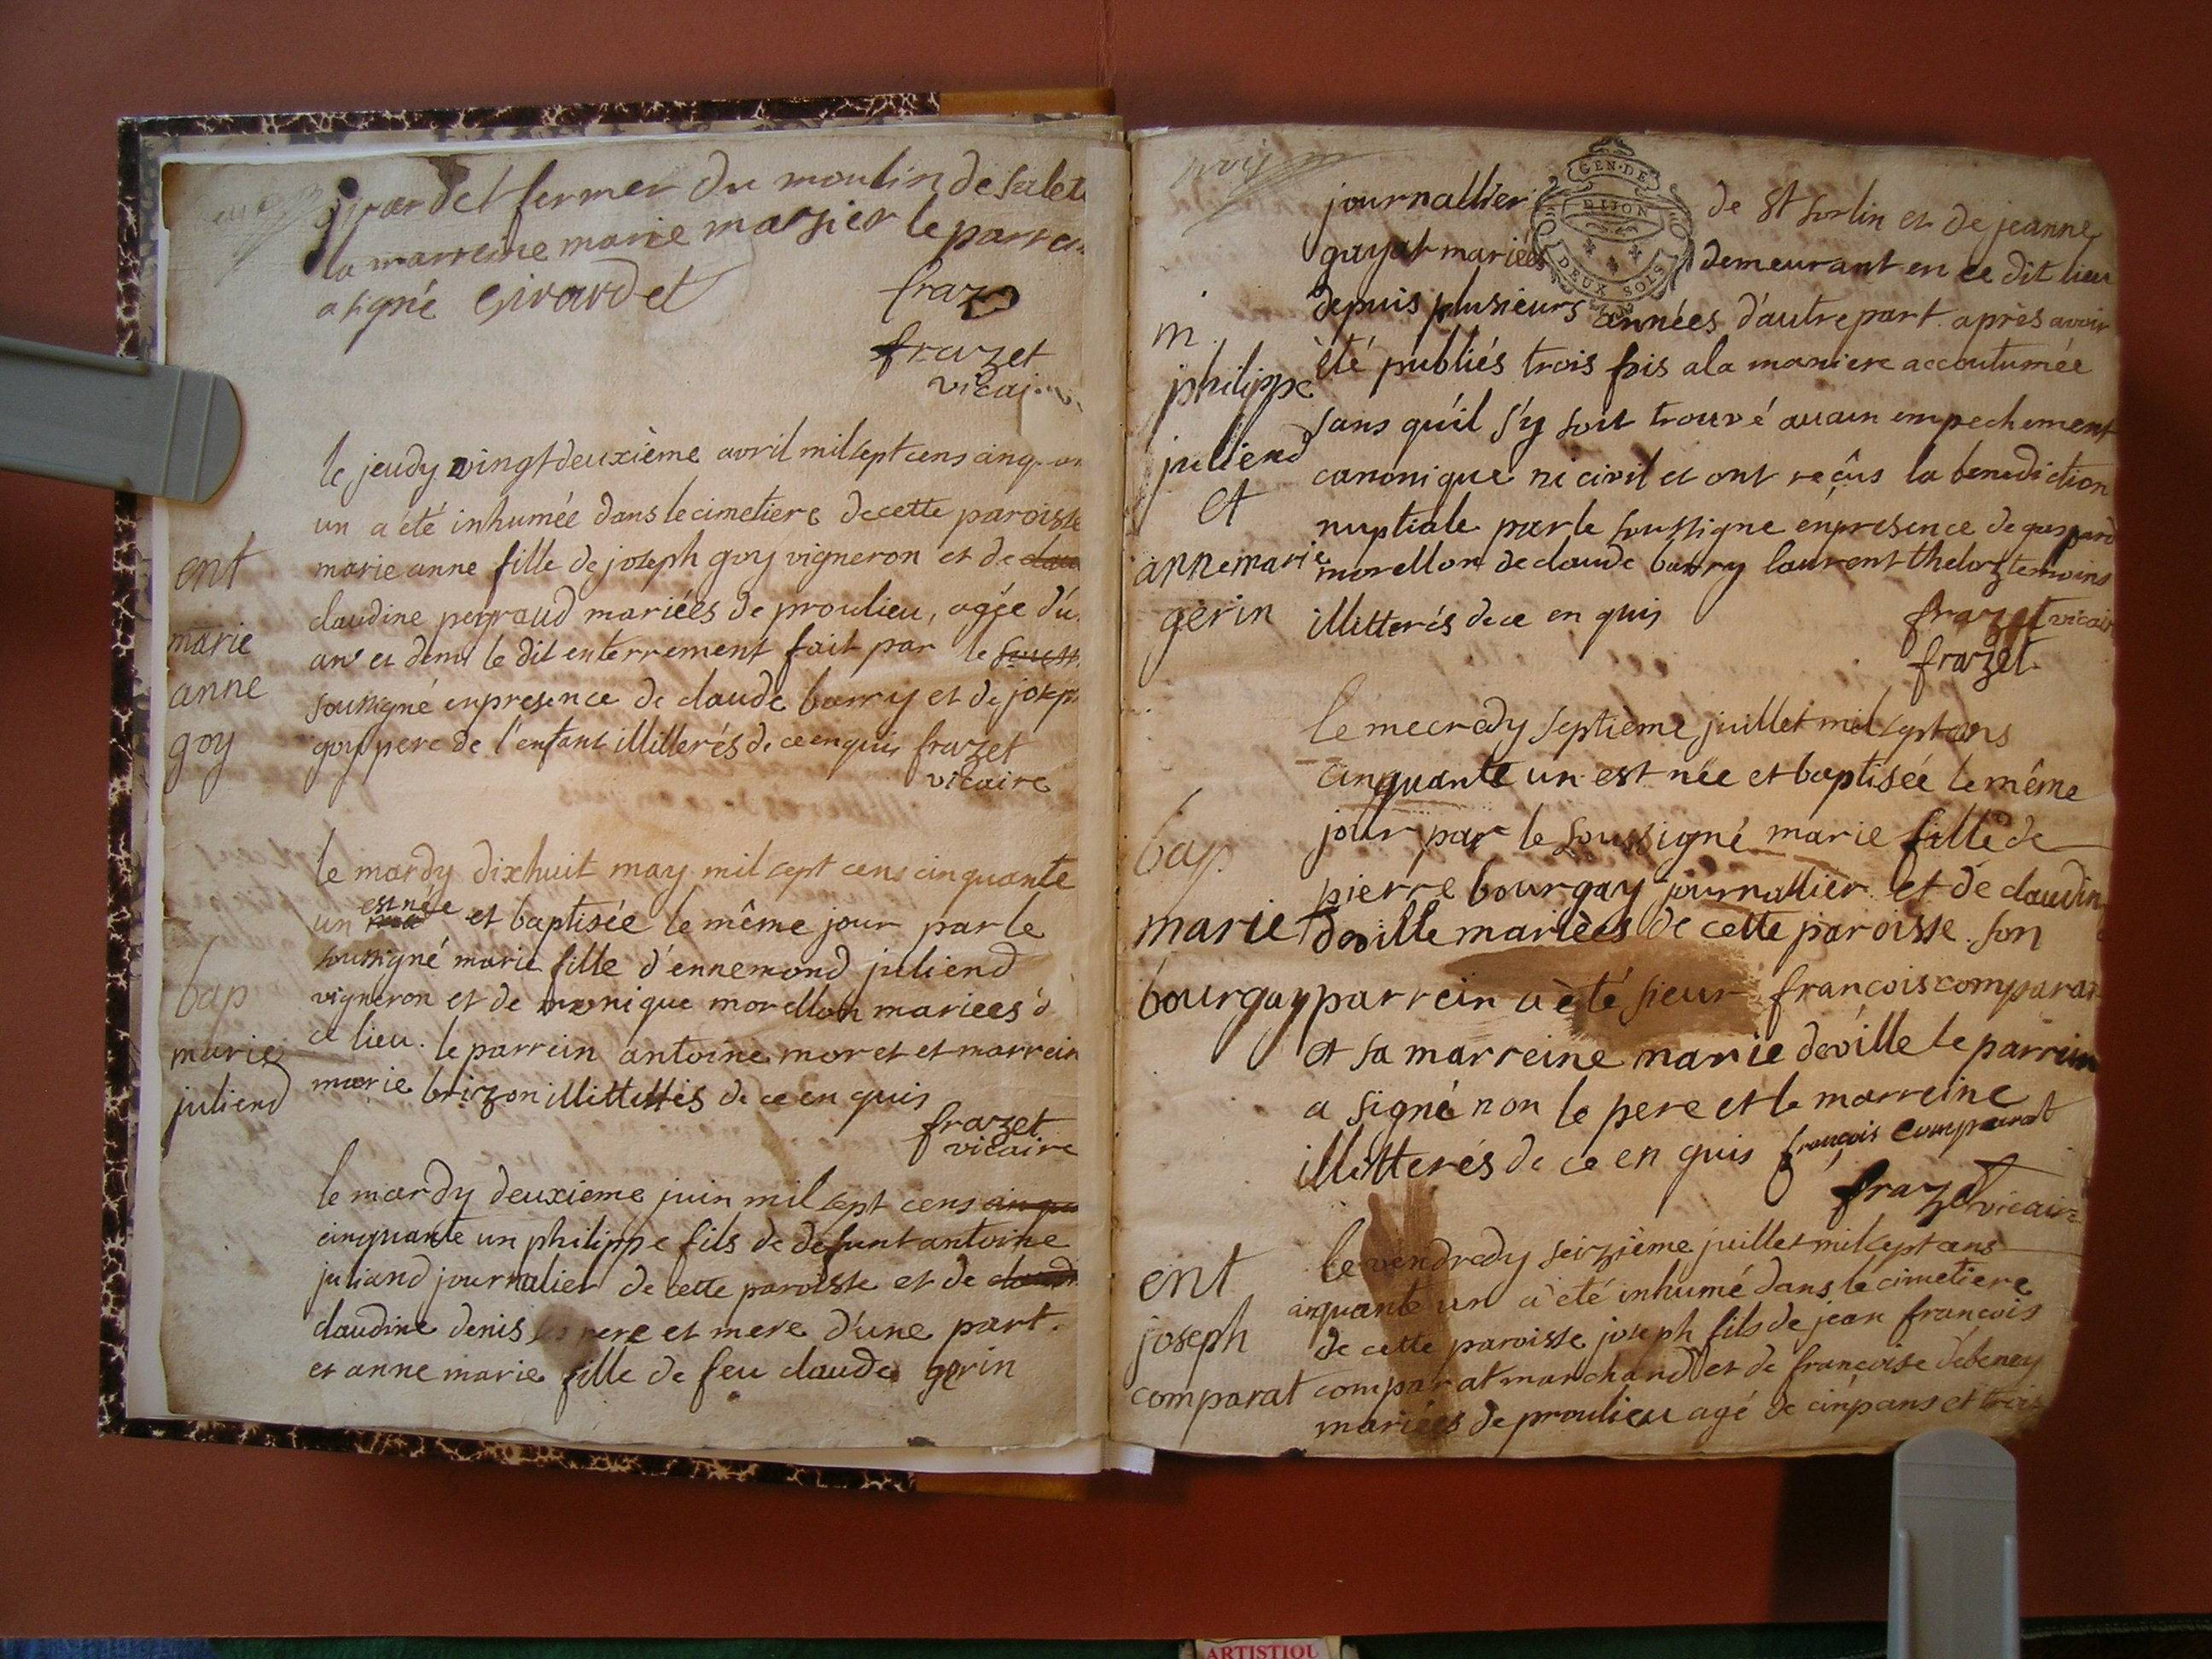 girardet fermer du moulin de salet
la marreine marie marsier le parrein
a signé Girardet
fraz
frazet
vicai
le jeudy vingtdeuxième avril mil sept cens cinq
un a été inhumée dans le cimetiere de cette paroisse
ent
marie anne fille de joseph goy vigneron et de
claudine perraud mariées de proulieu, agée d'u
marie
an et demi le dit enterrement fait par le
anne
soussigné en presence de claude barry et de joseph
goy
goy pere de l'enfant illitterés de ce enquis frazet
vicaire
le mardy dixhuit may mil sept cens cinquante
est née
un et baptisée le même jour par le
soussigné marie fille d'ennemond juliend
bap
vigneron et de monique morellon mariees d
marie
ce lieu. le parrein antoine moret et marrein
juliend
marie brizon illitterés de ce en quis
frazet
vicaire
le mardy deuxieme juin mil sept cens
cinquante un philippe fils de defunt antoine
juliand journalier de cette paroisse et de
claudine denis pere et mere d'une part.
et anne marie fille de feu claude gerin
trois
GEN. DE
DIJON
DEUX SOLS
journallier de St Sorlin et de jeanne
guyat mariées demeurant en ce dit lieu
depuis plusieurs années d'autre part après avoir
m.
été publiés trois fois a la maniere accoutumée
philippe
sans qu'il s'y soit trouvé aucun empechement
juliend
canonique ni civil et ont reçus la benediction
et
nuptiale par le soussigne en presence de gaspard
annemarie
morellon de claude barry laurent theloz temoins
gerin
illitterés de ce en quis frazet vicair
frazet
le mecredy septième juillet mil sept cens
cinquante un est née et baptisée le même
bap
jour par le soussigné marie fille de
pierre bourgay journallier et de claudin
marie
deville mariées de cette paroisse. son
bourgay
parrein a été sieur francois comparat
et sa marreine marie deville le parrein
a signé non le pere et la marreine
illitterés de ce en quis françois comparat
frazet vicaire
le vendredy seizième juillet mil sept cens
ent
cinquante un a été inhumé dans le cimetiere
joseph
de cette paroisse joseph fils de jean francois
comparat
comparat marchand et de francoise debeney
mariées de proulieu agé de cinq ans et trois
ARTISTIQU